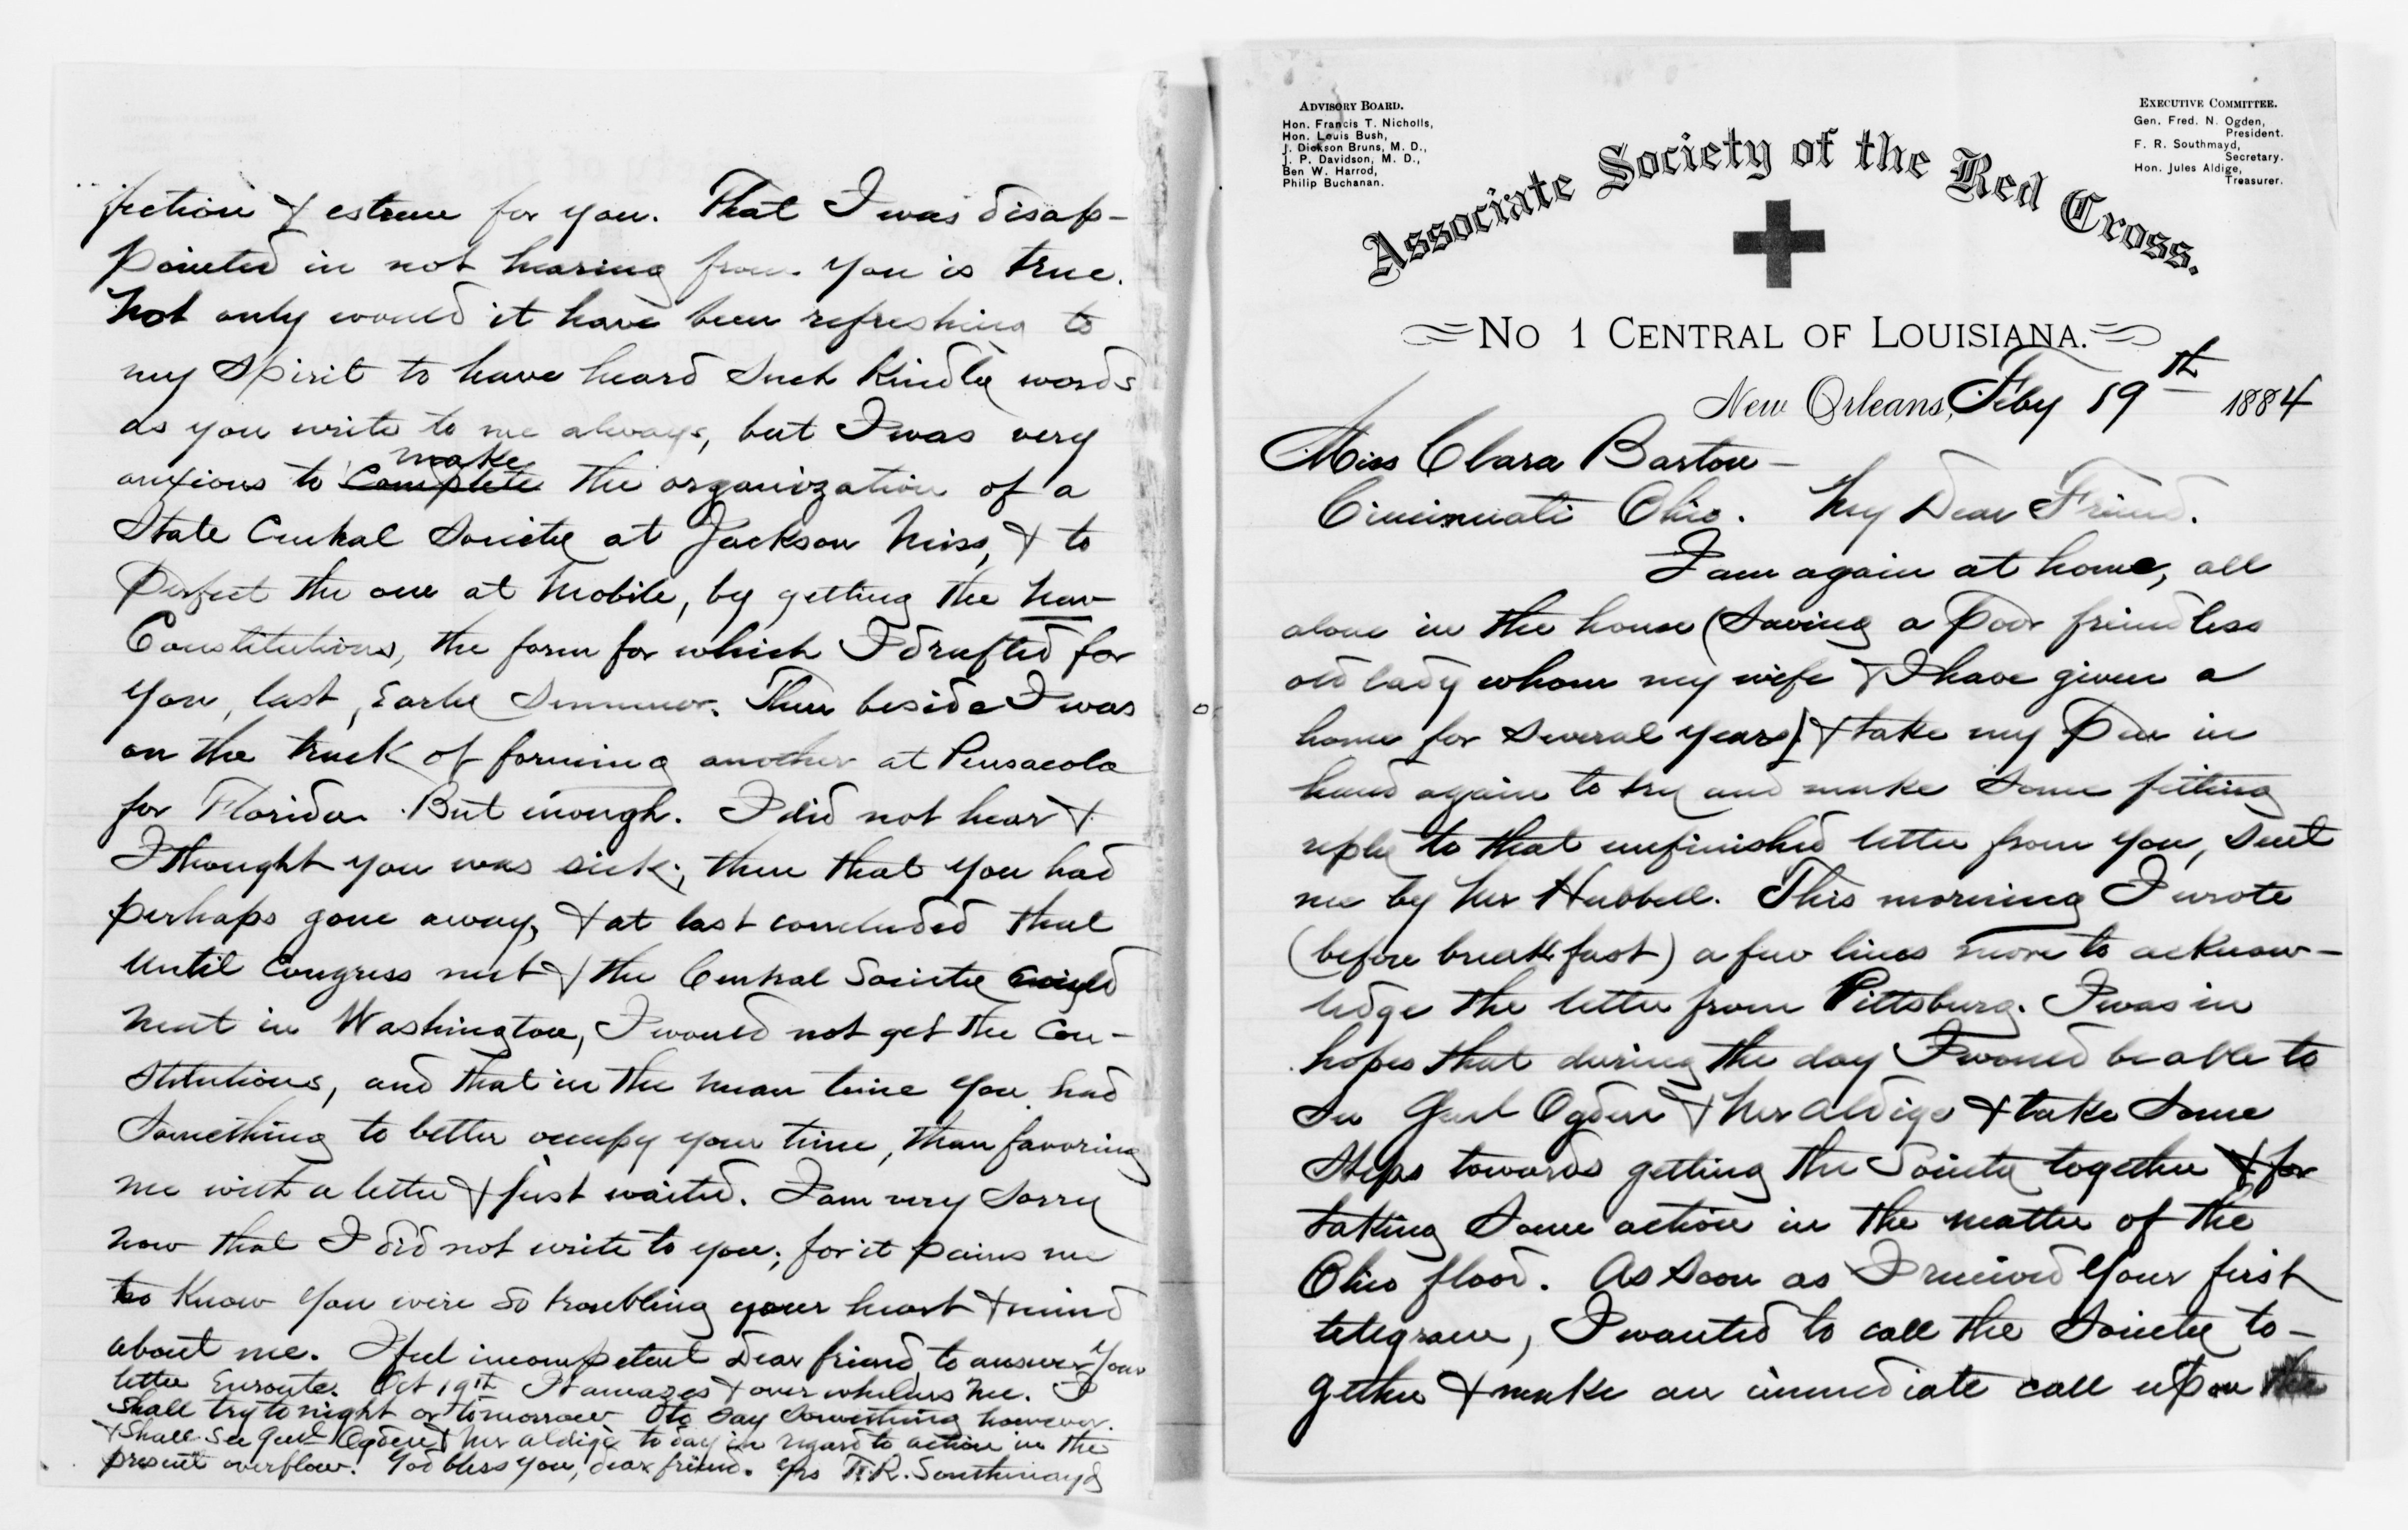 fection & esteem for you. That I was disap-
pointed in not hearing from you is true.
Not only would it have been refreshing to
my spirit to have heard such kindly words
as you write to me always, but I was very
make
anxious to Complete the organization of a
State Central Society at Jackson Miss, & to
Perfect the one at Mobile, by getting the new
Constitutions, the form for which I drafted for
you, last, Early Summer. Then beside I was
on the track of forming another at Pensacola
for Florida. But enough. I did not hear &
I thought you was sick; then that you had
perhaps gone away, & at last concluded that
until Congress met & the Central Society could
meet in Washington, I would not get the Con-
stitutions, and that in the mean time you had
Something to better occupy your time, than favoring
me with a letter & just waited. I am very sorry
now that I did not write to you; for it pains me
to know you were so troubling your heart & mind
about me. I feel incompetent dear friend to answer your
letter Enroute. Oct 19th It amazes & overwhelms me. I
shall try to night or tomorrow to say something however.
& shall see Genl Ogden & Mr Aldige to day in regard to action in the
present overflow. God bless you, dear friend. Yrs F.R. Southmayd
ADVISORY BOARD.
Hon. Francis T. Nicholls,
Hon. Louis Bush,
J. Dickson Bruns, M. D.,
J. P. Davidson, M. D.,
Ben W. Harrod,
Philip Buchanan.
EXECUTIVE COMMITTEE.
Gen. Fred. N. Ogden,
President.
F. R. Southmayd,
Secretary.
Hon. Jules Aldige,
Treasurer.
Associate Society of the Red Cross.
No 1 CENTRAL OF LOUISIANA.
New Orleans, Feby 19th 1884
Miss Clara Barton-
Cincinnati Ohio. My Dear Friend.
I am again at home, all
alone in the house (saving a poor friendless
old lady whom my wife & I have given a
home for several years) & take my Pen in
hand again to try and make some fitting
reply to that unfinished letter from you, sent
me by Mr Hubbell. This morning I wrote
(before breakfast) a few lines more to acknow-
ledge the letter from Pittsburg. I was in
hopes that during the day I would be able to
see Genl Ogden & Mr Aldige & take some
steps towards getting the Society together & for
taking some action in the matter of the
Ohio flood. As soon as I received your first
telegram, I wanted to call the Society to-
gether & make an immediate call upon the